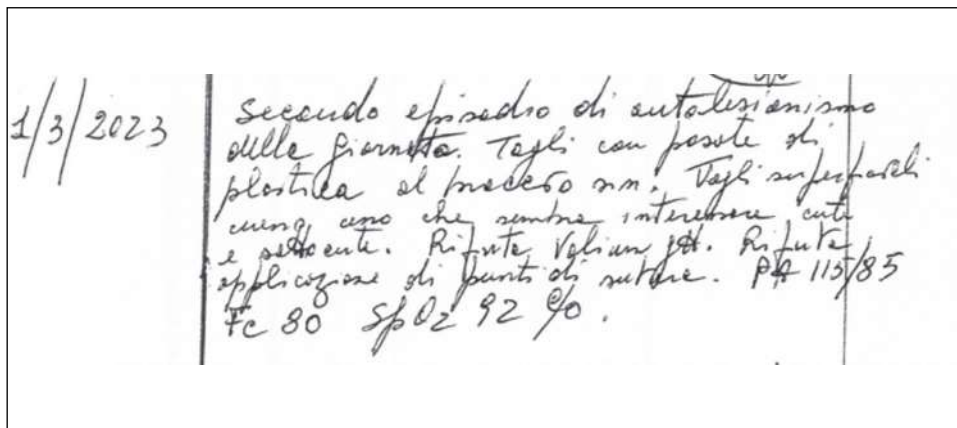 1/3/2023
Secondo episodio di autolesionismo
della giornata. Tagli con posate di
plastica al braccio sn. Tagli superficiali
meno uno che sembra interessare cute
e sottocute. Rifiuta Valium gtt. Rifiuta
applicazione di punti di sutura. PA 115/85
Fc 80 SpO2 92 %.